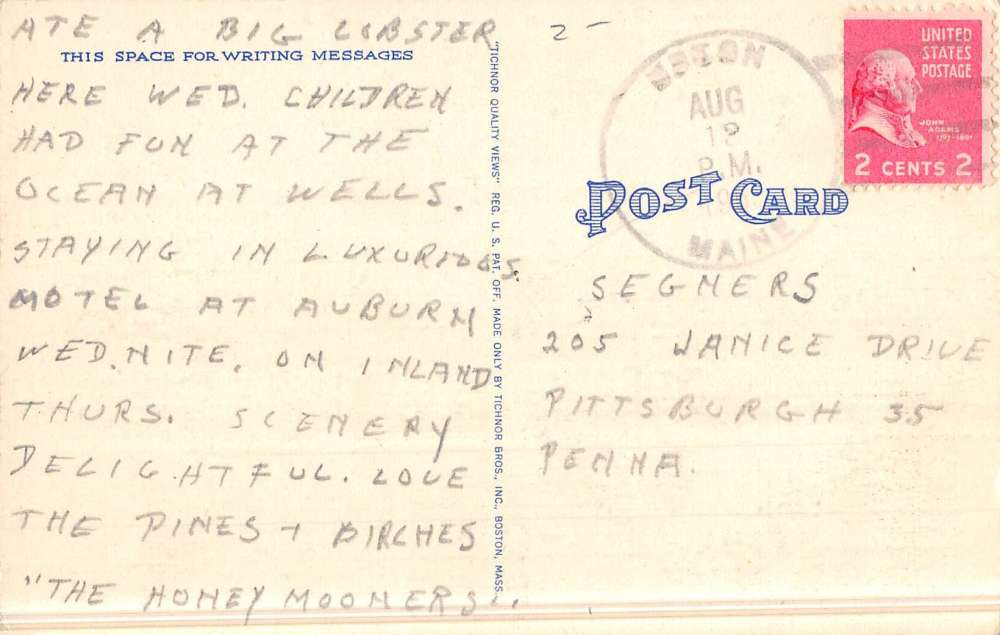 ATE A BIG LOBSTER
THIS SPACE FOR WRITING MESSAGES
HERE WED. CHILDREN
HAD FUN AT THE
OCEAN AT WELLS.
STAYING IN LUXURIOUS
MOTEL AT AUBURN
WED. NITE. ON INLAND
THURS. SCENERY
DELIGHTFUL. LOVE
THE PINES + BIRCHES
"THE HONEYMOONERS"
"TICHNOR QUALITY VIEWS" REG. U. S. PAT. OFF. MADE ONLY BY TICHNOR BROS., INC., BOSTON, MASS.
2-
AUG
12
P.M.
MAINE
UNITED
STATES
POSTAGE
JOHN
ADAMS
1797-1801
2 CENTS 2
POST CARD
SEGMERS
205 JANICE DRIVE
PITTSBURGH 35
PENNA.